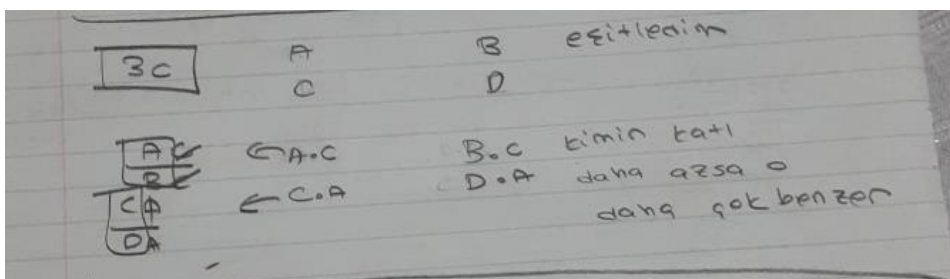 3C A B eşitledim
C D
AC ←A.C B.C kimin katı
BC ←C.A D.A daha azsa o
CA daha çok benzer
DA